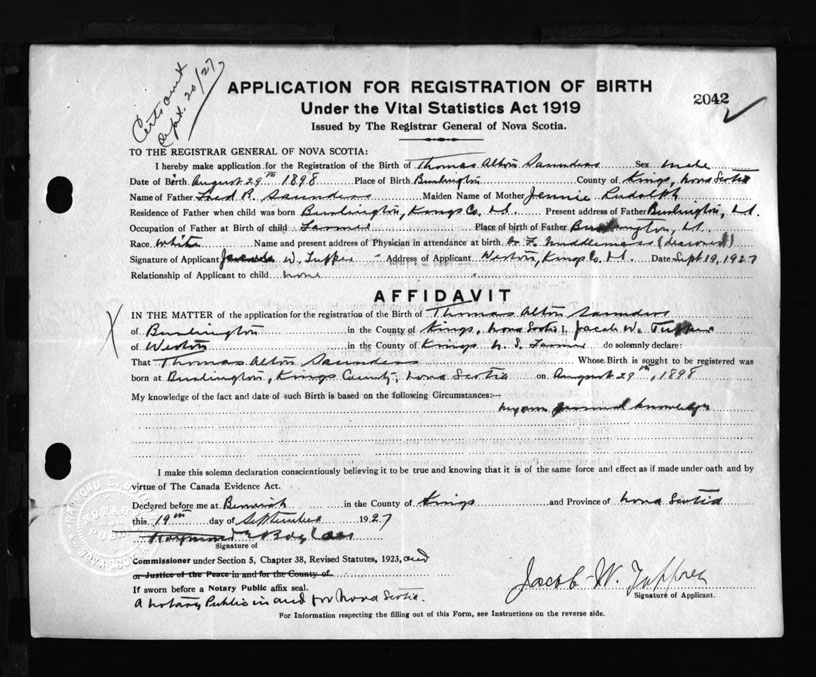 Certs amt
Sept. 20/27
APPLICATION FOR REGISTRATION OF BIRTH
Under the Vital Statistics Act 1919
2042
Issued by The Registrar General of Nova Scotia.
TO THE REGISTRAR GENERAL OF NOVA SCOTIA:
I hereby make application for the Registration of the Birth of Thomas Alton Saunders Sex male
Date of Birth August 29th 1898 Place of Birth Burlington County of Kings, Nova Scotia
Name of Father Fred R. Saunders Maiden Name of Mother Jennie Rudolph
Residence of Father when child was born Burlington, Kings Co. Present address of Father Burlington,
Occupation of Father at Birth of child Farmer Place of birth of Father Burlington,
Race White Name and present address of Physician in attendance at birth (deceased)
Signature of Applicant Jacob W. Tupper Address of Applicant Weston, Kings Co. Date Sept 19, 1927
Relationship of Applicant to child none
AFFIDAVIT
IN THE MATTER of the application for the registration of the Birth of Thomas Alton Saunders
of Burlington in the County of Kings, Nova Scotia I, Jacob W. Tupper
of Weston in the County of Kings N. S. Farmer do solemnly declare:
That Thomas Alton Saunders Whose Birth is sought to be registered was
born at Burlington, Kings County, Nova Scotia on August 29th, 1898
My knowledge of the fact and date of such Birth is based on the following Circumstances:—
my own personal knowledge
I make this solemn declaration conscientiously believing it to be true and knowing that it is of the same force and effect as if made under oath and by
virtue of The Canada Evidence Act.
Declared before me at Berwick in the County of Kings and Province of Nova Scotia
this 19th day of September 1927
Raymond
Signature of
Commissioner under Section 5, Chapter 38, Revised Statutes, 1923, and
or Justice of the Peace in and for the County of
If sworn before a Notary Public affix seal.
A Notary Public in and for Nova Scotia.
Jacob W. Tupper
Signature of Applicant.
For Information respecting the filling out of this Form, see Instructions on the reverse side.